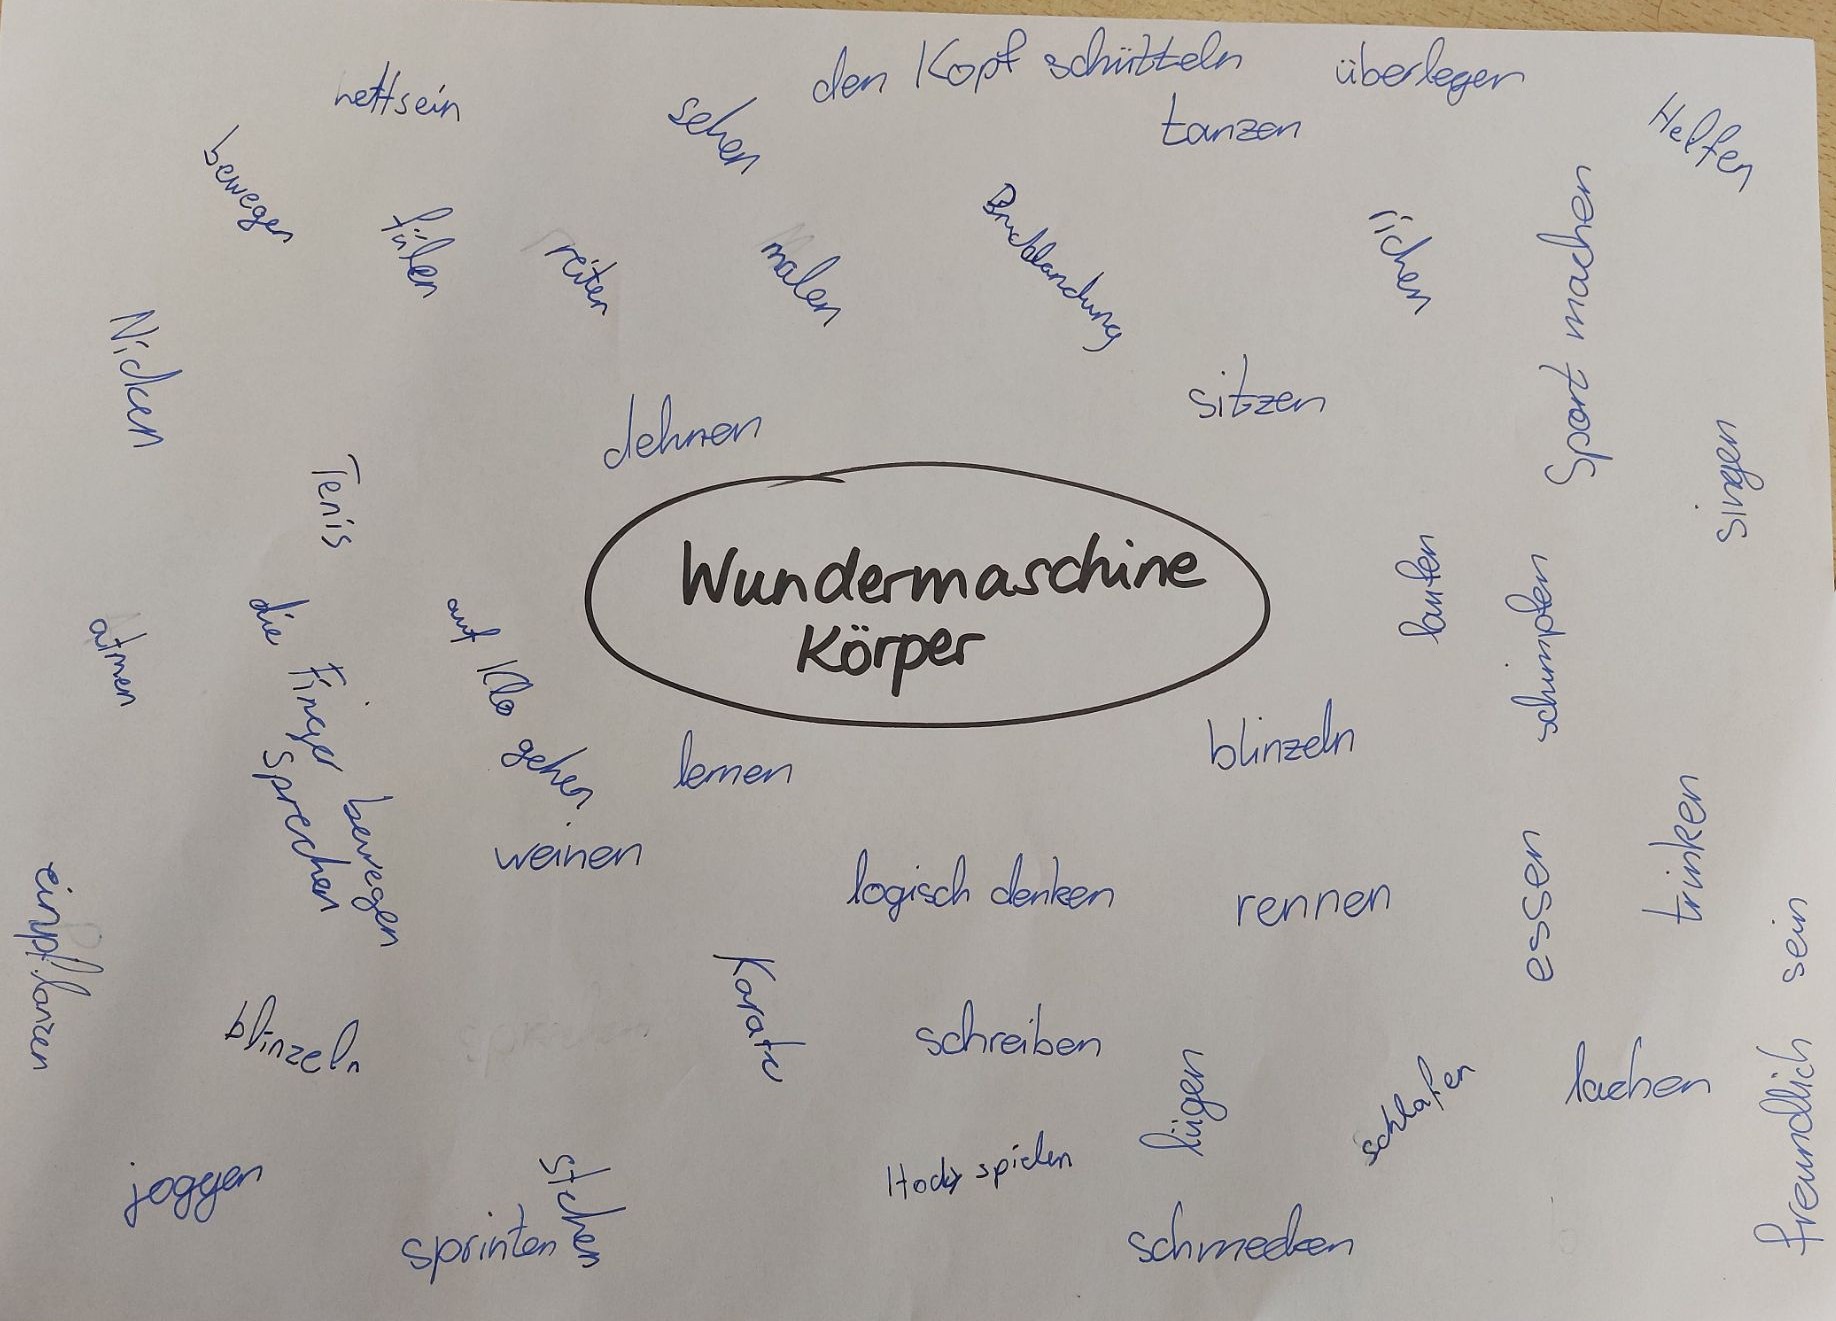 den Kopf schütteln
überlegen
nettsein
sehen
tanzen
Helfen
bewegen
fülen
reiten
malen
Bruchlandung
richen
Sport machen
Nicken
dehnen
sitzen
singen
Tenis
Wundermaschine
Körper
laufen
schimpfen
atmen
die Finger bewegen
auf Klo gehen
sprechen
lernen
blinzeln
weinen
logisch denken
rennen
essen
trinken
einpflanzen
blinzeln
Karate
schreiben
lügen
schlafen
lachen
freundlich sein
joggen
stehen
sprinten
Hocky spielen
schmecken